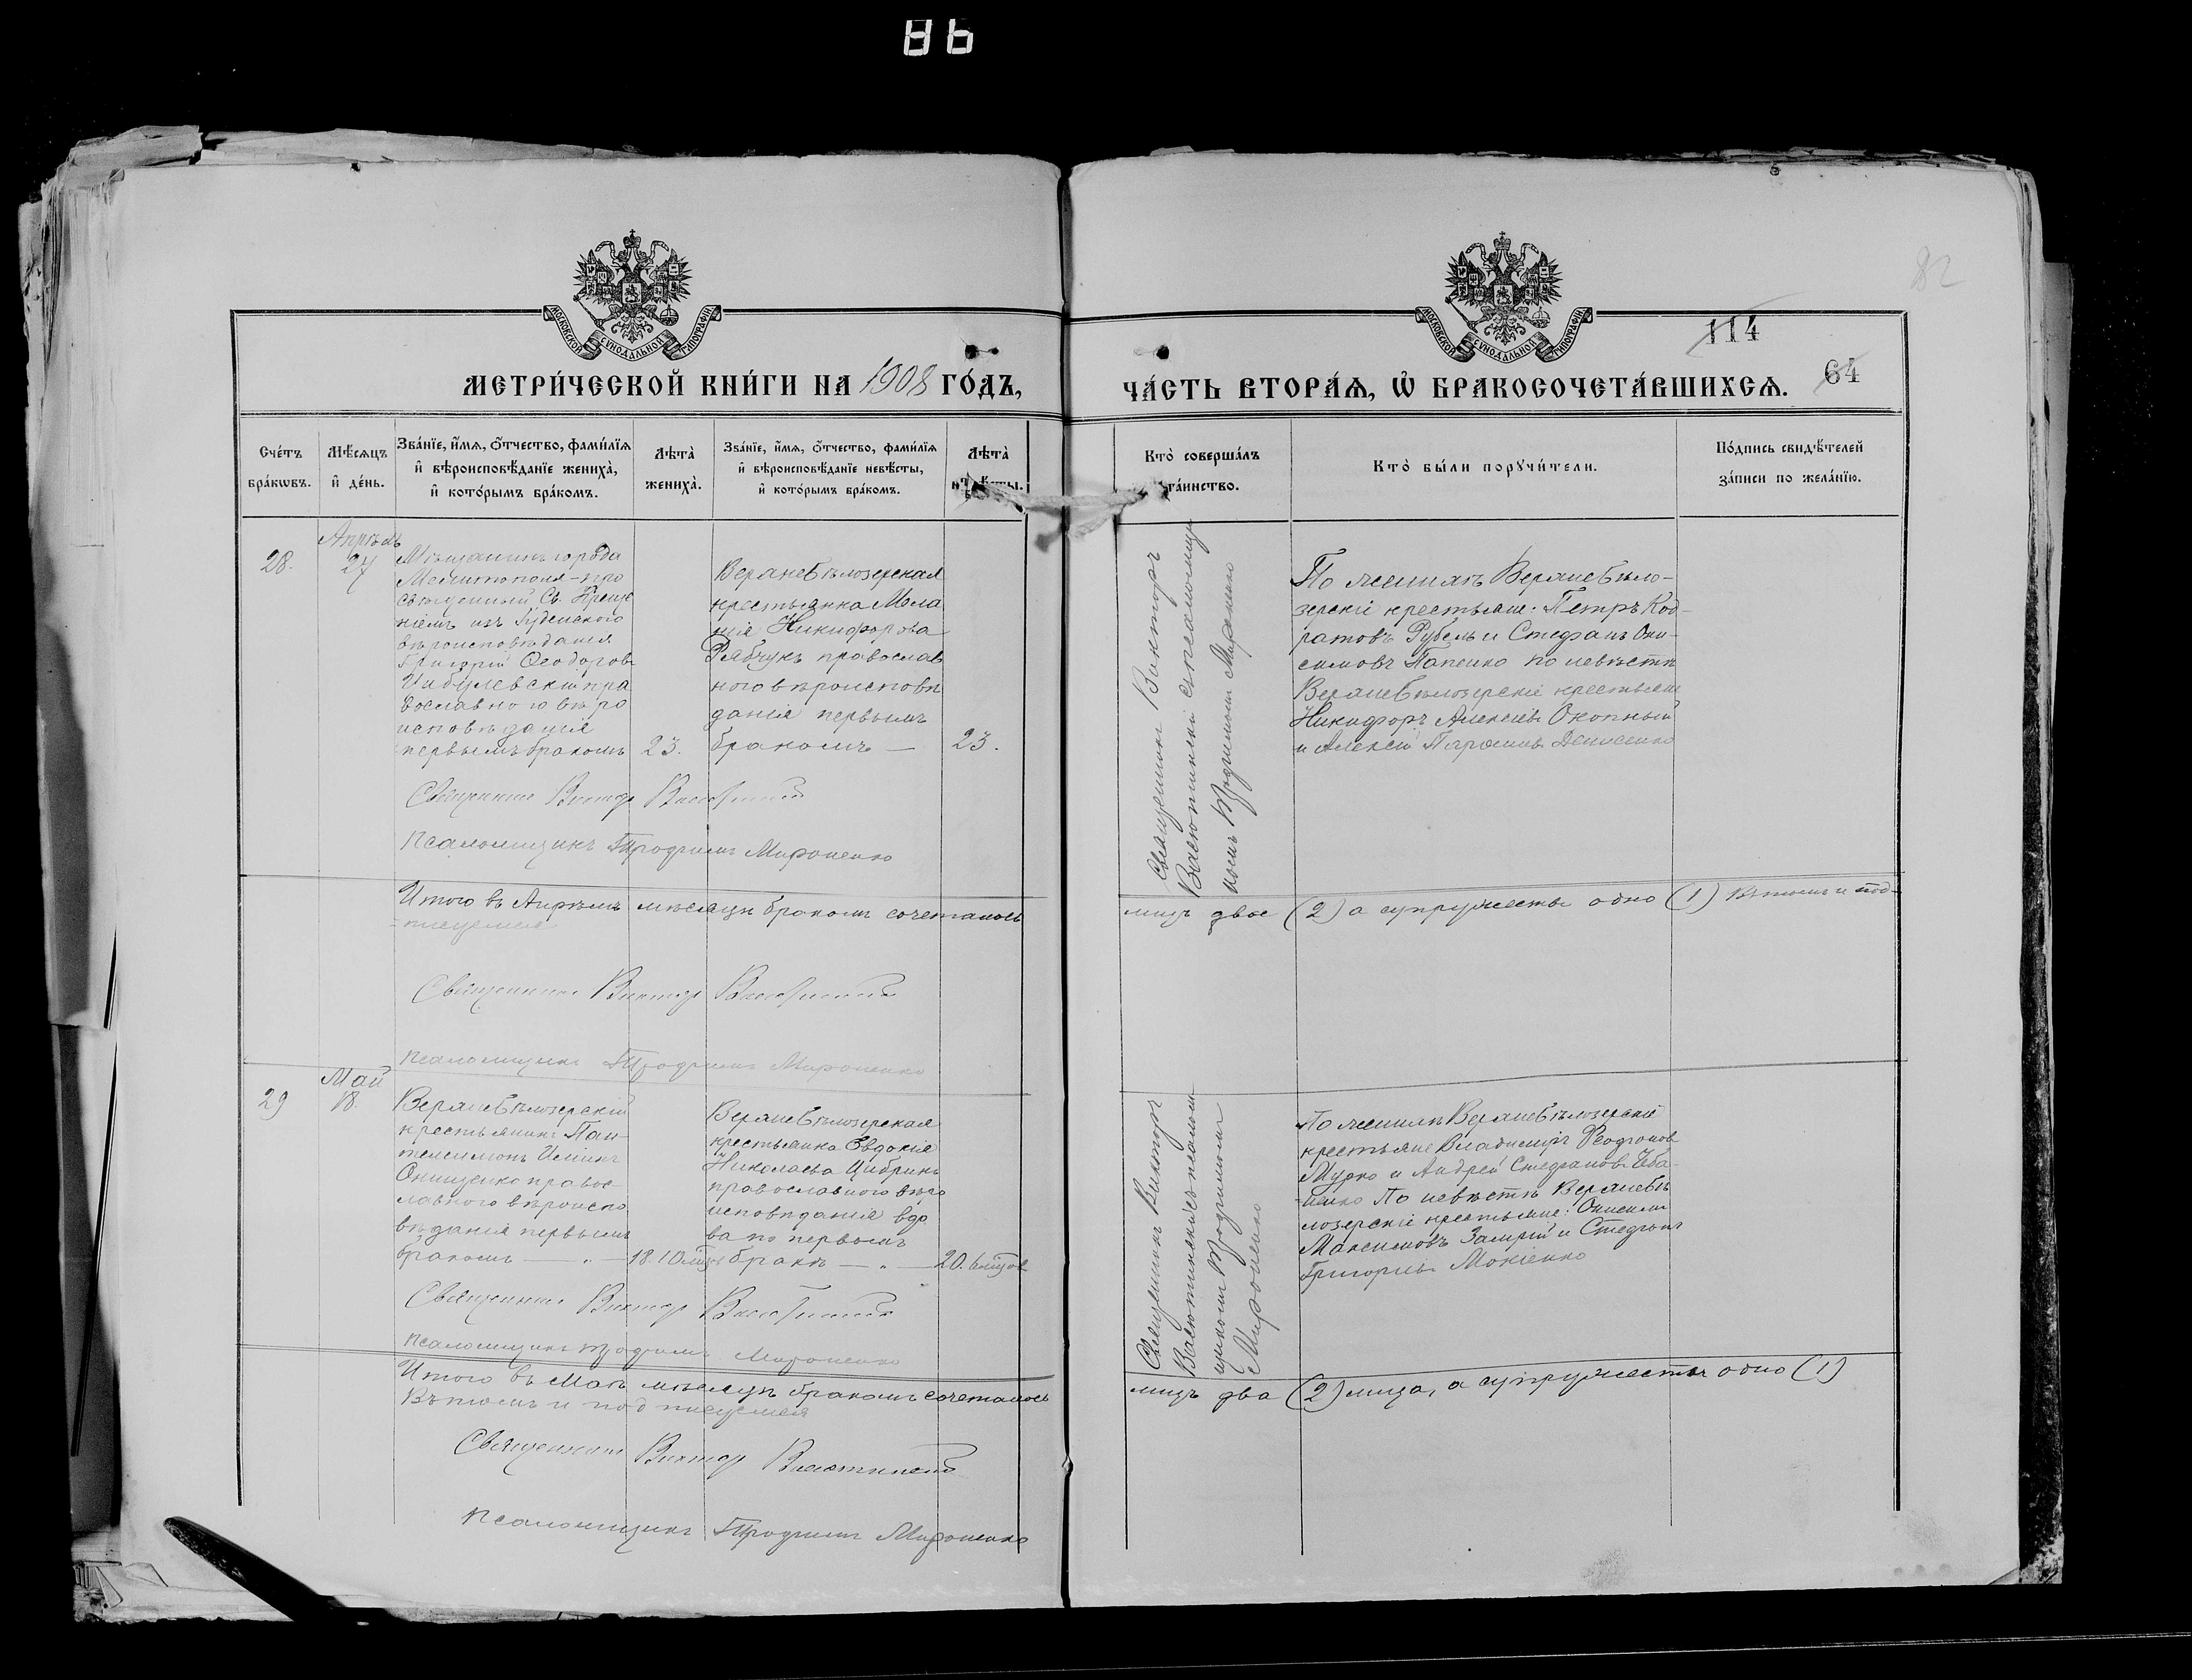 86
82
114
64
МОСКОВСКОЙ СѴНОДАЛЬНОЙ ТИПОГРАФІИ
МОСКОВСКОЙ СѴНОДАЛЬНОЙ ТИПОГРАФІИ
МЕТРИ́ЧЕСКОЙ КНИ́ГИ НА 1908 ГО́ДЪ,
ЧА́СТЬ ВТОРА́Ѧ, Ѡ҆ БРАКОСОЧЕТА́ВШИХСѦ.
Сче́тъ
бра́кѡвъ.
Мѣ́сѧцъ
и҆ де́нь.
Зва́нїе, и҆́мѧ, ѻ҆́тчество, фами́лїѧ
и҆ вѣроисповѣ́данїе жениха̀,
и҆ кото́рымъ бра́комъ.
Лѣта̀
жениха̀.
Зва́нїе, и҆́мѧ, ѻ҆́тчество, фами́лїѧ
и҆ вѣроисповѣ́данїе невѣ́сты,
и҆ кото́рымъ бра́комъ.
Лѣта̀
невѣ́сты.
Кто̀ соверша́лъ
та́инство.
Кто̀ бы́ли порꙋчи́тели.
По́дпись свидѣ́телей
за́писи по жела́нїю.
28.
Апрѣль
27
Мѣщанинъ города
Мелитополя - про
свѣщенный Св. Креще
ніемъ изъ Іудейскаго
вѣроисповѣданія
Григорій Ѳеодоровъ
Цибулевскій пра
вославного вѣро
исповѣданія
первымъ бракомъ
23.
Верхнебѣлозерская
крестьянка Мела
нія Никифорова
Рябчукъ православ
ного вѣроисповѣ
данія первымъ
бракомъ —
23.
Священникъ Викторъ
Васютинскій съ псаломщи
комъ Трофимомъ Мироненко
По женихѣ Верхнебѣло-
зерскіе крестьяне: Петръ Код-
ратовъ Рубель и Стефанъ Они-
симовъ Папенко по невѣстѣ
Верхнебѣлозерскіе крестьяне
Никифоръ Алексѣевъ Окопный
и Алексѣй Денисенко
Священникъ Викторъ Васютинскій
Псаломщикъ Трофимъ Мироненко
Итого въ Апрѣлѣ мѣсяцѣ бракомъ сочеталось
лицъ двое (2) а супружества одно (1) Въ томъ и под-
-писуемся
Священникъ Викторъ Васютинскій
Псаломщикъ Трофимъ Мироненко
29
Май
18.
Верхнебѣлозерскій
крестьянинъ Пан-
телеимонъ Ильинъ
Онищенко правос-
лавного вѣроиспо
вѣданія первымъ
бракомъ — „ —
18. 10 мѣс.
Верхнебѣлозерская
крестьянка Евдокія
Николаева Цибринъ
православного вѣро
исповѣданія вдо
ва по первомъ
бракѣ — „ —
20.
Священникъ Викторъ
Васютинскій съ псалом
щикомъ Трофимомъ
Мироненко
По женихѣ Верхнебѣлозерскіе
крестьяне Владиміръ
Мурко и Андрей Стефановъ Чба-
ненко По невѣстѣ Верхнебѣ
лозерскіе крестьяне: Онисимъ
Максимовъ и Стефанъ
Григорьевъ Мокіенко
Священникъ Викторъ Васютинскій
Псаломщикъ Трофимъ Мироненко
Итого въ Маѣ мѣсяцѣ бракомъ сочеталось
лицъ два (2) лица, а супружества одно (1)
Въ томъ и подписуемся
Священникъ Викторъ Васютинскій
Псаломщикъ Трофимъ Мироненко